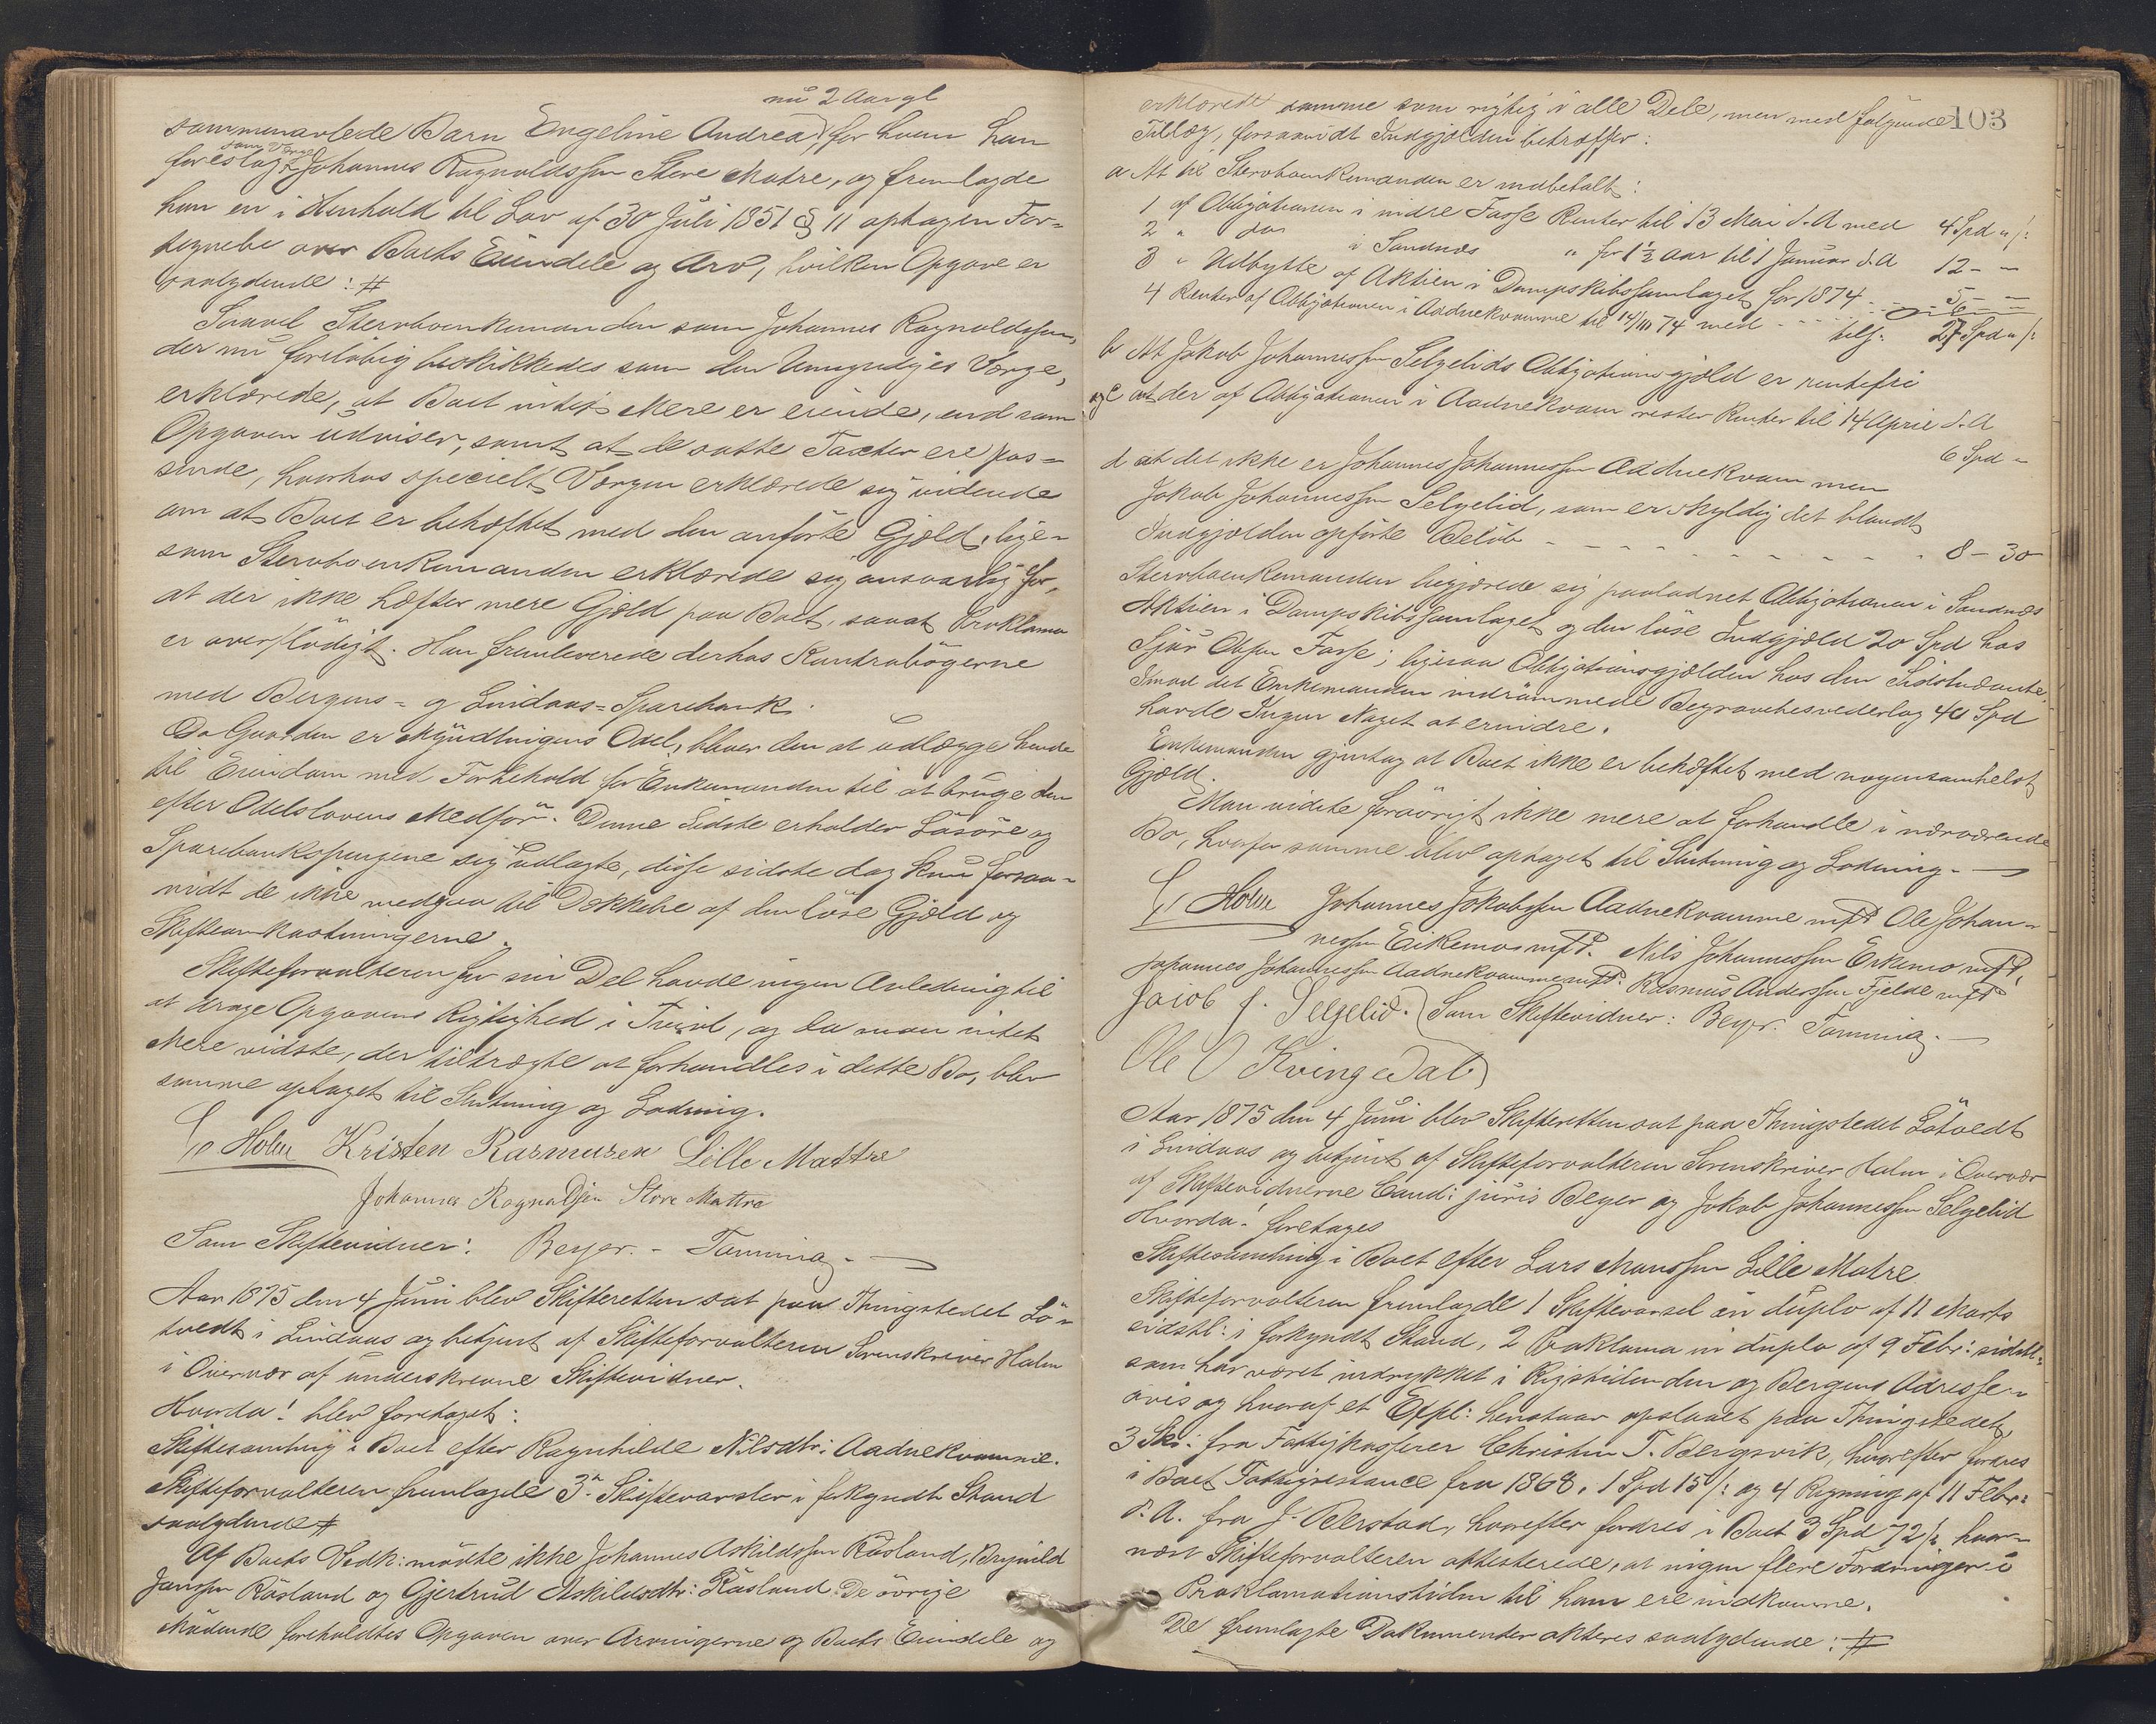 nu 2 Aar gl
sammenavlede Barn Engeline Andrea, for hvem han
som Værge
foreslog Johannes Ragnaldssen Store Matre, og fremlagde
han en i Henhold til Lov af 30 Juli 1851 § 11 optagen For-
tegnelse over Boets Eiendele og Arv, hvilken Opgave er
saalydende: #
Saavel Stervboenkemanden som Johannes Ragnaldssen,
der nu foreløbig beskikkedes som den Umyndiges Værge,
erklærede, at Boet intet Mere er eiende, end som
Opgaven udviser, samt at de satte Taxter ere pas-
sende, hvorhos specielt Værgen erklærede sig vidende
om at Boet er behæftet med den anførte Gjæld, lige-
som Stervboenkemanden erklærede sig ansvarlig for,
at der ikke hæfter mere Gjæld paa Boet, saaat Proklama
er overflødigt. Han fremleverede derhos Kontrabøgerne
med Bergens- og Lindaas-Sparebank.
Da Gaarden er Myndlingens Odel, bliver den at udlægge hende
til Eiendom med Forbehold for Enkemanden til at bruge den
efter Odelslovens Medfør. Denne Sidste erholder Løsøre og
Sparebankspengene sig udlagte, disse sidste dog kun forsaa-
vidt de ikke medgaa til Dækkelse af den løse Gjæld og
Skifteomkostningerne.
Skifteforvalteren for sin Del havde ingen Anledning til
at drage Opgavens Rigtighed i Tvivl, og da man intet
Mere vidste, der tiltrængte at forhandles i dette Bo, blev
samme optaget til Slutning og Lodning.
Holm Kristen Rasmusen Lille Mattre
Johannes Ragnaldsen Store Mattre
Som Skiftevidner: Beyer. - Tanning.
Aar 1875 den 4 Juni blev Skifteretten sat paa Thingstedet Lø-
tvedt i Lindaas og betjent af Skifteforvalteren Sorenskriver Holm
i Overvær af underskrevne Skiftevidner.
Hvorda! blev foretaget:
Skiftesamling i Boet efter Ragnhilde Nilsdtr: Aadnekvamme.
Skifteforvalteren fremlagde 3 Skiftevarsler i forkyndt Stand
saalydende #
Af Boets Vedk: mødte ikke Johannes Askildssen Røsland, Brynild
Janssen Røsland og Gjertrud Askildsdtr: Røsland. De øvrige
Mødende foreholdtes Opgaven over Arvingerne og Boets Eiendele og
103
erklærede samme som rigtig i alle Dele, men med følgende
Tillæg, forsaavidt Indgjælden betræffer:
a At til Stervboenkemanden er indbetalt:
1 af Obligationen i indre Fosse Renter til 13 Mai d. A med 4 Spd " /:
2 " do i Sandnæs " for 1½ Aar til 1 Januar d. A 12 - "
3 " Udbytte af Aktien i Dampskibssamlaget for 1874 5 - "
4 Renter af Obligationen i Aadnekvamme til 14/10 74 med 6 -
tils: 27 Spd " /:
b At Jakob Johannessen Selgelids Obligationsgjæld er rentefri
og c at der af Obligationen i Aadnekvam rester Renter til 14 April d. A
6 Spd "
d at det ikke er Johannes Johannessen Aadnekvam men
Jakob Johannessen Selgelid, som er skyldig det blandt
Indgjælden opførte Beløb 8 - 30
Stervboenkemanden begjærede sig paalodnet Obligationen i Sandnæs
Aktien i Dampskibssamlaget og den løse Indgjæld 20 Spd hos
Sjur Olsen Fosse; ligesaa Obligationsgjælden hos den Sidstnævnte.
Imod det Enkemanden indrømmede Begravelsesvederlag 40 Spd
havde Ingen Noget at erindre.
Enkemanden gjentog at Boet ikke er behæftet med nogensomhelst
Gjæld.
Man vidste forøvrigt ikke mere at forhandle i nærværende
Bo, hvorfor samme blev optaget til Slutning og Lodning. -
Holm Johannes Jakobssen Aadnekvamme mfP Ole Johan-
nessen Eikemo mfP. Nils Johannessen Eikemo mfP.
Johannes Johannessen Aadnekvamme mfP. Rasmus Anderssen Fjelde mfP
Jaiob J. Selgelid. Som Skiftevidner: Beyer. Tanning.
Ole O Kvingedal
Aar 1875 den 4 Juni blev Skifteretten sat paa Thingstedet Løtvedt
i Lindaas og betjent af Skifteforvalteren Sorenskriver Holm i Overvær
af Skiftevidnerne Cand: juris Beyer og Jakob Johannessen Selgelid
Hvorda! foretoges
Skiftesamling i Boet efter Lars Monssen Lille Matre
Skifteforvalteren fremlagde 1 Skiftevarsel in duplo af 11 Marts
sidstl: i forkyndt Stand, 2 Proklama in duplo af 9 Febr: sidstl:
som har været indrykket i Rigstidenden og Bergens Adresse-
avis og hvoraf et Expl: henstaar opslaaet paa Thingstedet,
3 Skr: fra Fattigkasserer Christen T. Bergsvik, hvorefter fordres
i Boet Fattigrestance fra 1868, 1 Spd 15 /: og 4 Regning af 11 Febr:
d. A. fra J. Berstad, hvorefter fordres i Boet 3 Spd 72 /:, hvor-
næst Skifteforvalteren attesterede, at ingen flere Fordringer i
Proklamationstiden til ham ere indkomne.
De fremlagte Dokumenter akteres saalydende: #